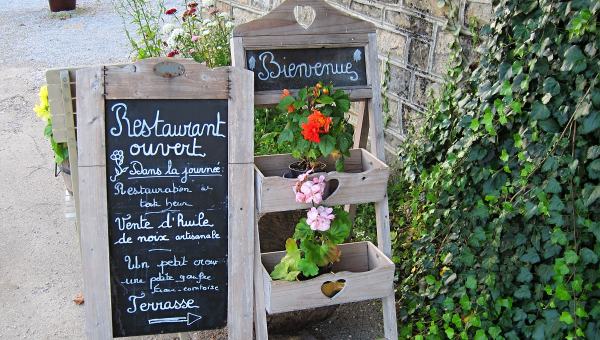 Bienvenue
Restaurant
ouvert
Dans la journée
Restauration à
toute heure
Vente d'Huile
de noix artisanale
Un petit creux
une petite gaufre
Terrasse